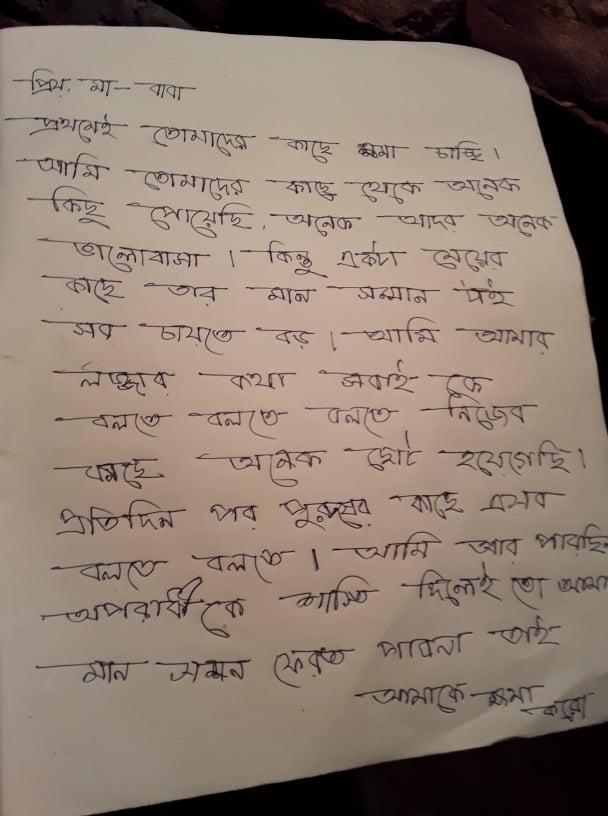 প্রিয়. মা - বাবা
প্রথমেই তোমাদের কাছে ক্ষমা চাচ্ছি।
আমি তোমাদের কাছে থেকে অনেক
কিছু পোয়েছি, অনেক আদর অনেক
ভালোবাসা। কিন্তু একটা মেয়ের
কাছে তার মান সম্মান
সব চায়তে বড়। আমি আমার
লজ্জার কথা সবাই কে
বলতে বলতে বলতে নিজের
কাছে অনেক ছোট হয়েগেছি।
প্রতিদিন পর পুরুষের কাছে এসব
বলতে বলতে। আমি আর পারছিন
অপরাধী কে শাস্তি দিলেই তো আমা
মান সম্মন ফেরত পাবনা তাই
আমাকে ক্ষমা করো